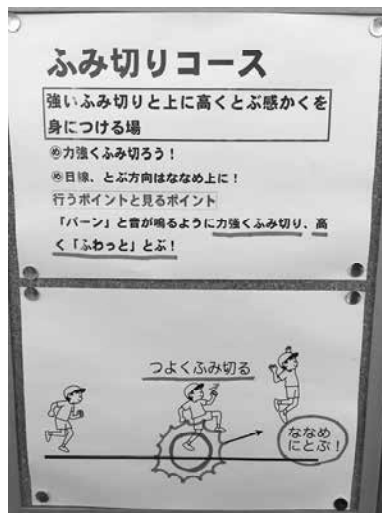 ふみ切りコース
強いふみ切りと上に高くとぶ感かくを
身につける場
㋱力強くふみ切ろう！
㋱目線、とぶ方向はななめ上に！
行うポイントと見るポイント
「バーン」と音が鳴るように力強くふみ切り、高
く「ふわっと」とぶ！
つよくふみ切る
ななめ
にとぶ！